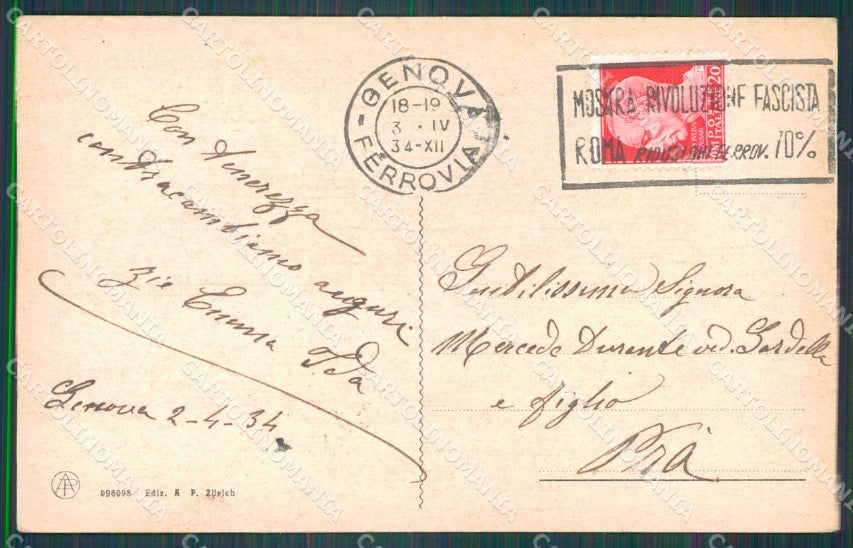 Con tenerezza
contracambiamo auguri
zie Emma Ida
Genova 2-4-34
098098 Ediz. A P. Zürich
GENOVA
18-19
3 · IV
34-XII
FERROVIA
20
POSTE ITALIANE
MOSTRA RIVOLUZIONE FASCISTA
ROMA RIDUZIONI FERROV. 70%
Gentilissima Signora
Mercede Durante ved. Gardella
e figlio
Prà
CARTOLINOMANIA